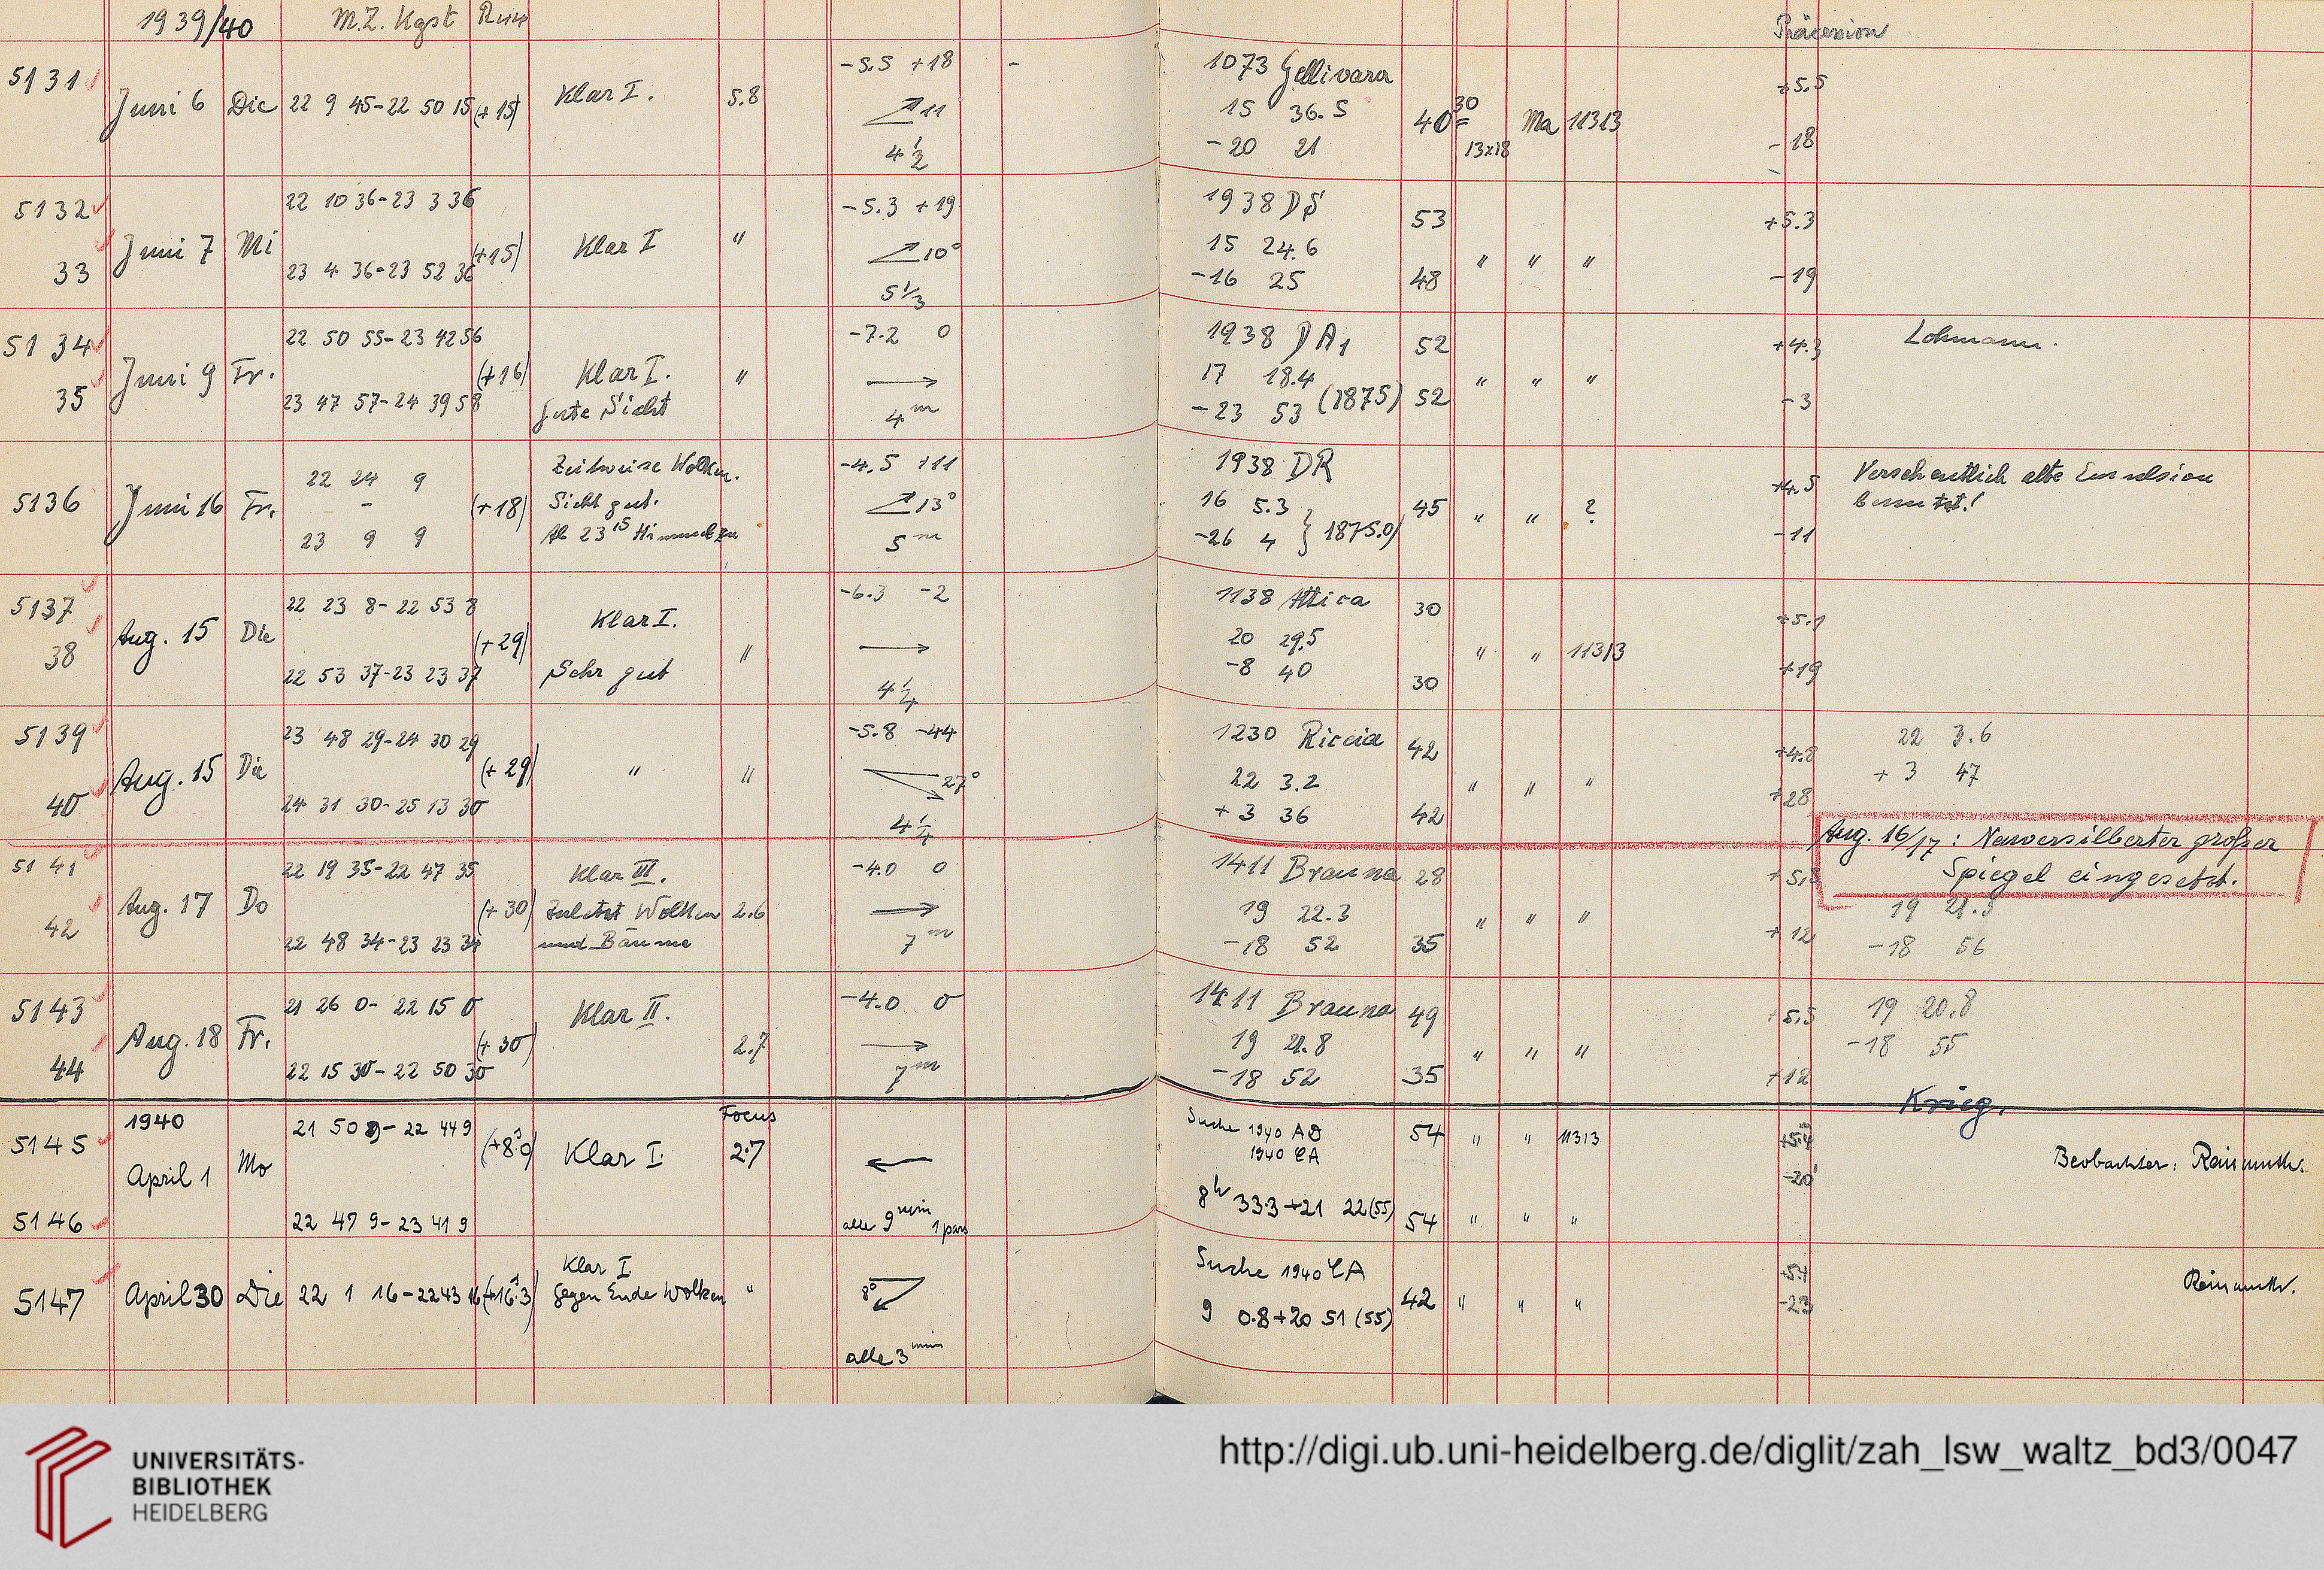 1939/40 M.Z. Kgst Präcession
5131 Juni 6 Die 22 9 45-22 50 15 (+15) Klar I. 5.8 -5.5 +18 - 11 4 1/2 1073 Gellivara 15 36.5 -20 21 40 30 13x18 Ma 11313 +5.5 -18
5132 33 Juni 7 Mi 22 10 36-23 3 36 23 4 36-23 52 36 (+15) Klar I " -5.3 +19 10° 5 1/3 1938 DS 15 24.6 -16 25 53 48 " " " +5.3 -19
5134 35 Juni 9 Fr. 22 50 55-23 42 56 23 47 57-24 39 58 (+16) Klar I. gute Sicht " -7.2 0 → 4 m 1938 DA1 17 18.4 -23 53 (1875) 52 52 " " " +4.3 -3 Lohmann.
5136 Juni 16 Fr. 22 24 9 - 23 9 9 (+18) Zeitweise Wolken. Sicht gut. Ab 23 15 Himmel zu " -4.5 +11 13° 5 m 1938 DR 16 5.3 -26 4 } 1875.0) 45 " " ? +4.5 -11 Versehentlich alte Emulsion benutzt!
5137 38 Aug. 15 Die 22 23 8-22 53 8 22 53 37-23 23 37 (+29) Klar I. Sehr gut " -6.3 -2 → 4 1/4 1138 Attica 20 29.5 -8 40 30 30 " " 11313 +5.1 +19
5139 40 Aug. 15 Die 23 48 29-24 30 29 24 31 30-25 13 30 (+29) " " -5.8 -44 27° 4 1/4 1230 Riccia 22 3.2 +3 36 42 42 " " " +4.8 +28 22 3.6 +3 47
Aug. 16/17: Neuversilberter großer
Spiegel eingesetzt.
5141 42 Aug. 17 Do 22 19 35-22 47 35 22 48 34-23 23 34 (+30) Klar III. Zuletzt Wolken und Bäume 2.6 -4.0 0 → 7 m 1411 Brauna 19 22.3 -18 52 28 35 " " " +12 -18 56
5143 44 Aug. 18 Fr. 21 26 0-22 15 0 22 15 30-22 50 30 (+30) Klar II. 2.7 -4.0 0 → 7 m 1411 Brauna 19 21.8 -18 52 49 35 " " " +5.5 +12 19 20.8 -18 55
Krieg.
5145 5146 1940 April 1 Mo 21 50 9-22 44 9 22 47 9-23 41 9 (+8.0) Klar I. Focus 2.7 ← alle 9 min 1 pars Suche 1940 AB 1940 CA 8h 33.3 +21 22 (55) 54 54 " " 11313 " " " +5.4 -20 Beobachter: Reinmuth.
5147 April 30 Die 22 1 16-22 43 16 (+16.3) Klar I. gegen Ende Wolken " 8° alle 3 min Suche 1940 CA 9 0.8 +20 51 (55) 42 " " " +5.4 -23 Reinmuth.
UNIVERSITÄTS-
BIBLIOTHEK
HEIDELBERG
http://digi.ub.uni-heidelberg.de/diglit/zah_lsw_waltz_bd3/0047